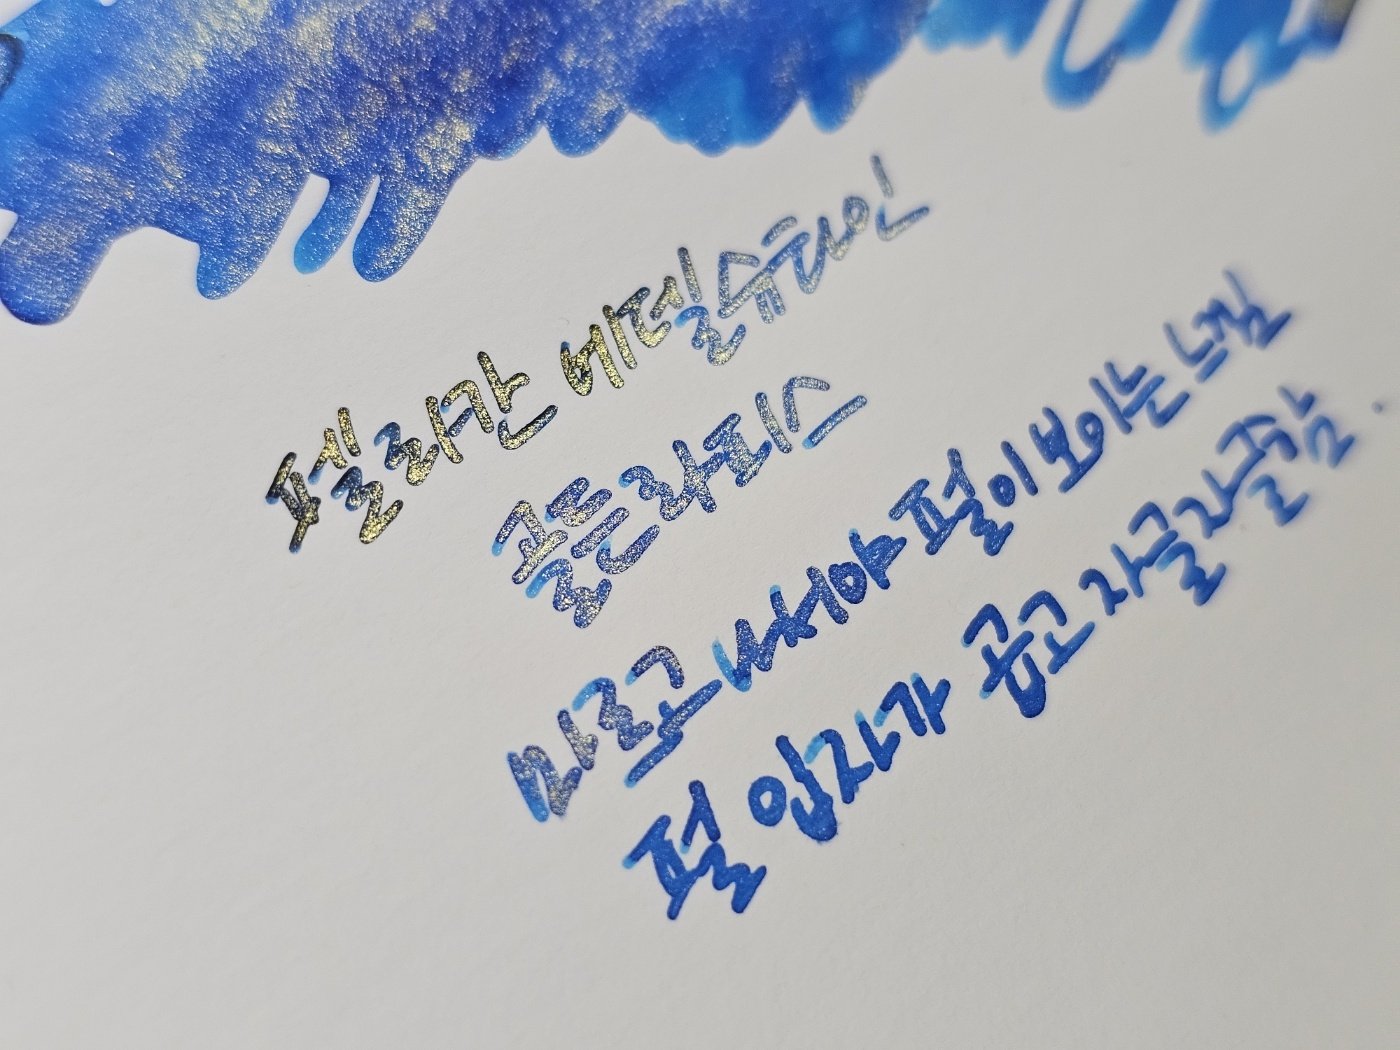 펠리칸 에델슈타인
골든 라피스
마르고 나서야 펄이 보이는 느낌
펄 입자가 곱고 자글자글함